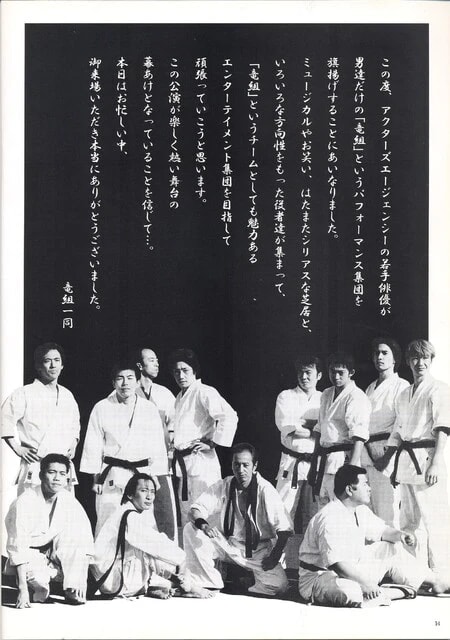 この度、アクターズエージェンシーの若手俳優が
男達だけの「竜組」というパフォーマンス集団を
旗揚げすることにあいなりました。
ミュージカルやお笑い、はたまたシリアスな芝居と、
いろいろな方向性をもった役者達が集まって、
「竜組」というチームとしても魅力ある
エンターテイメント集団を目指して
頑張っていこうと思います。
この公演が楽しく熱い舞台の
幕あけとなっていることを信じて…。
本日はお忙しい中、
御来場いただき本当にありがとうございました。
竜組一同
14